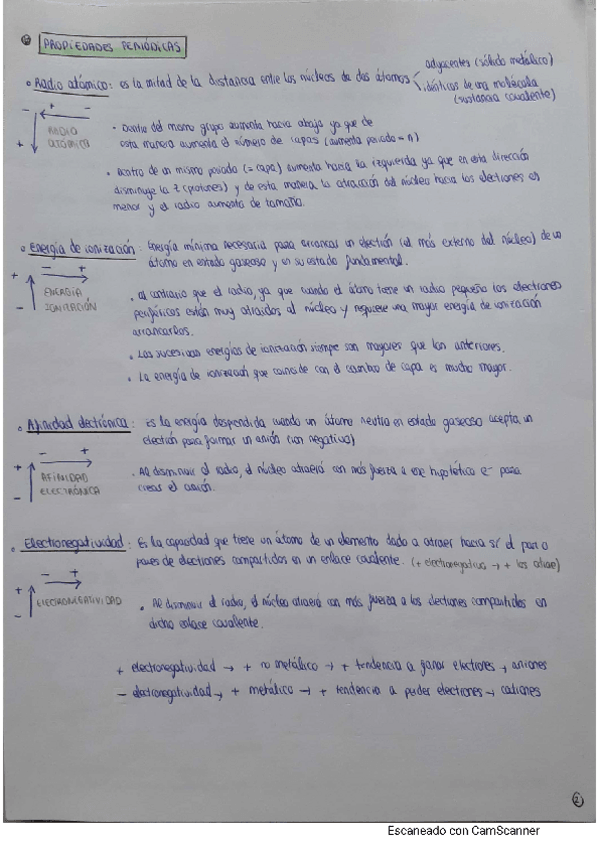 PROPIEDADES PERIÓDICAS
adyacentes (sólido metálico)
• Radio atómico: es la mitad de la distancia entre los núcleos de dos átomos
idénticos de una molécula
(sustancia covalente)
- +
RADIO
ATÓMICO
+
• Dentro del mismo grupo aumenta hacia abajo ya que de
esta manera aumenta el número de capas (aumenta periodo = n)
• Dentro de un mismo periodo (= capa) aumenta hacia la izquierda ya que en esta dirección
disminuye la Z (protones) y de esta manera la atracción del núcleo hacia los electrones es
menor y el radio aumenta de tamaño.
• Energía de ionización: Energía mínima necesaria para arrancar un electrón (el más externo del núcleo) de un
átomo en estado gaseoso y en su estado fundamental.
- +
+
ENERGÍA
IONIZACIÓN
-
• Al contrario que el radio, ya que cuando el átomo tiene un radio pequeño los electrones
periféricos están muy atraídos al núcleo y requiere una mayor energía de ionización
arrancarlos.
• Las sucesivas energías de ionización siempre son mayores que las anteriores.
• La energía de ionización que coincide con el cambio de capa es mucho mayor.
• Afinidad electrónica: Es la energía desprendida cuando un átomo neutro en estado gaseoso acepta un
electrón para formar un anión (ion negativo)
- +
+
AFINIDAD
ELECTRÓNICA
-
• Al disminuir el radio, el núcleo atraerá con más fuerza a ese hipotético e⁻ para
crear el anión.
• Electronegatividad: Es la capacidad que tiene un átomo de un elemento dado a atraer hacia sí el par o
pares de electrones compartidos en un enlace covalente. (+ electronegativo → + los atrae)
- +
+
ELECTRONEGATIVIDAD
-
• Al disminuir el radio, el núcleo atraerá con más fuerza a los electrones compartidos en
dicho enlace covalente.
+ electronegatividad → + no metálico → + tendencia a ganar electrones → aniones
- electronegatividad → + metálico → + tendencia a perder electrones → cationes
2
Escaneado con CamScanner